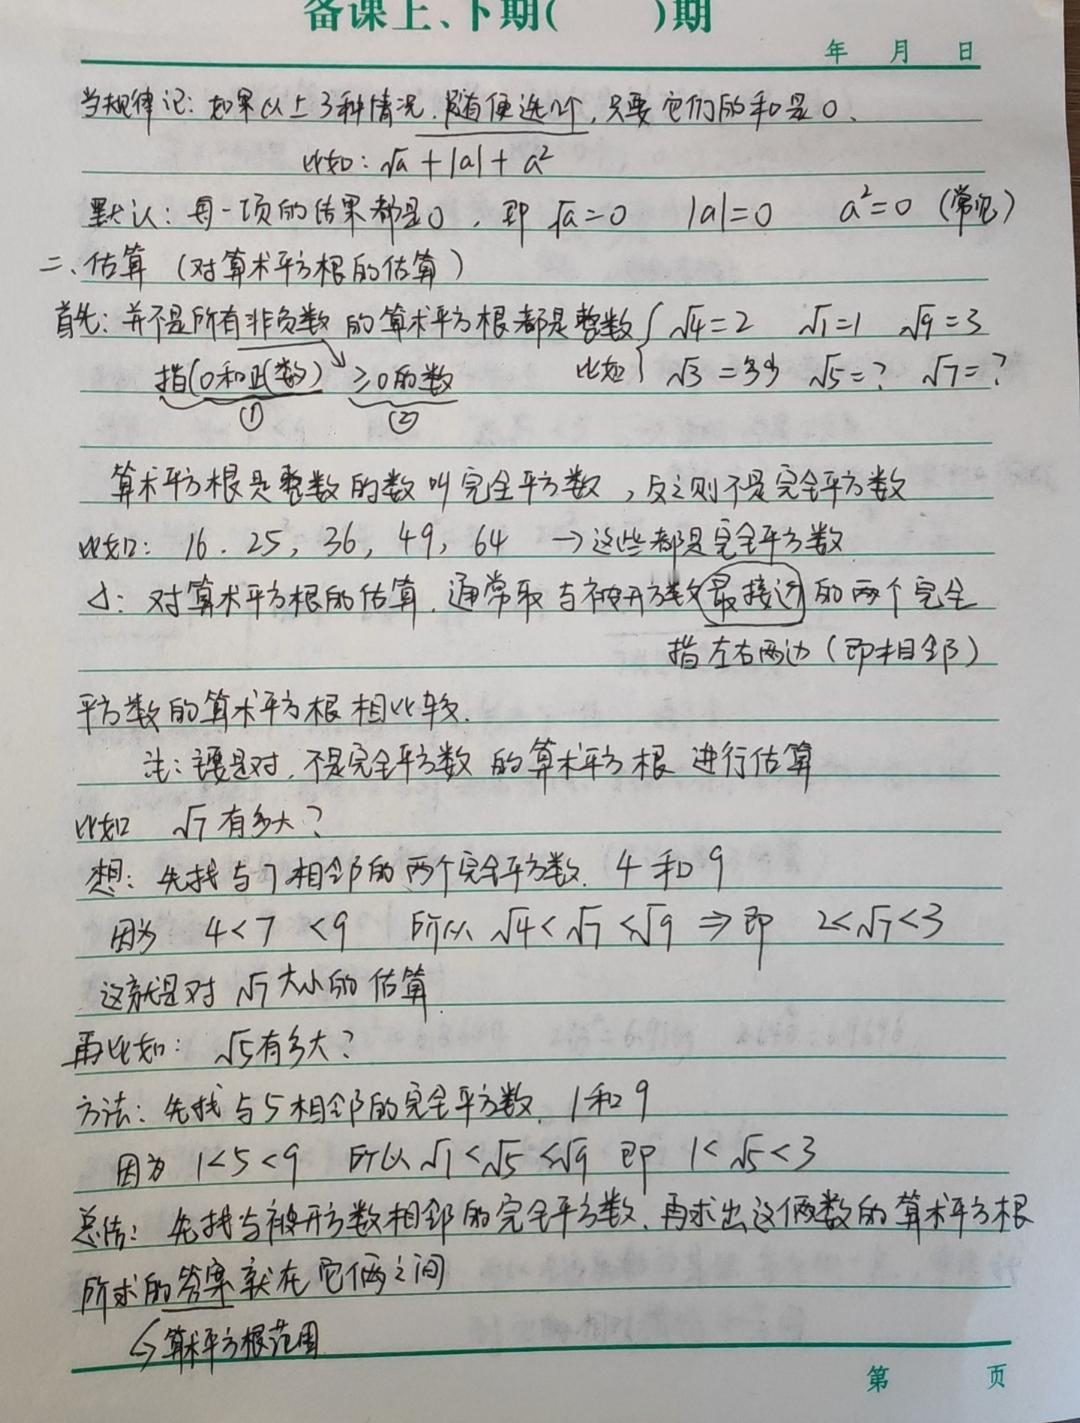 备课上、下期(  )期
年 月 日
当规律记: 如果以上3种情况.随便选几个,只要它们的和是0、
比如: √a + |a| + a²
默认: 每一项的结果都是0, 即 √a=0 |a|=0 a²=0 (常见)
二、估算 (对算术平方根的估算)
首先: 并不是所有非负数 的算术平方根都是整数 { √4=2 √1=1 √9=3
指(0和正数) ≥0的数 比如 √3=多少 √5=? √7=?
① ②
算术平方根是整数的数叫完全平方数,反之则不是完全平方数
比如: 16. 25, 36, 49, 64 →这些都是完全平方数
对算术平方根的估算.通常取与被开方数最接近的两个完全
指左右两边(即相邻)
平方数的算术平方根相比较.
注: 主要是对.不是完全平方数 的算术平方根 进行估算
比如 √7有多大?
想: 先找与7相邻的两个完全平方数. 4和9
因为 4<7<9 所以 √4<√7<√9 ⇒即 2<√7<3
这就是对√7大小的估算
再比如: √5有多大?
方法: 先找与5相邻的完全平方数. 1和9
因为 1<5<9 所以 √1<√5<√9 即 1<√5<3
总结: 先找与被开方数相邻的完全平方数.再求出这俩数的算术平方根
所求的答案就在它俩之间
↳算术平方根范围
第 页